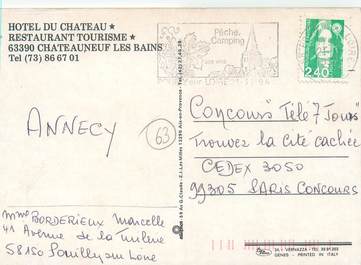 HOTEL DU CHATEAU ★
RESTAURANT TOURISME ★
63390 CHATEAUNEUF LES BAINS
Tel (73) 86 67 01
Pêche,
Camping
LOIRE
2,40
ANNECY
63
Concours Télé 7 Jours
Trouvez la cité cachée
CEDEX 3050
99305 PARIS CONCOURS
Mme BORDERIEUX Marcelle
41 Avenue de la Tuilerie
58150 Pouilly sur Loire
GENOS - PRINTED IN ITALY